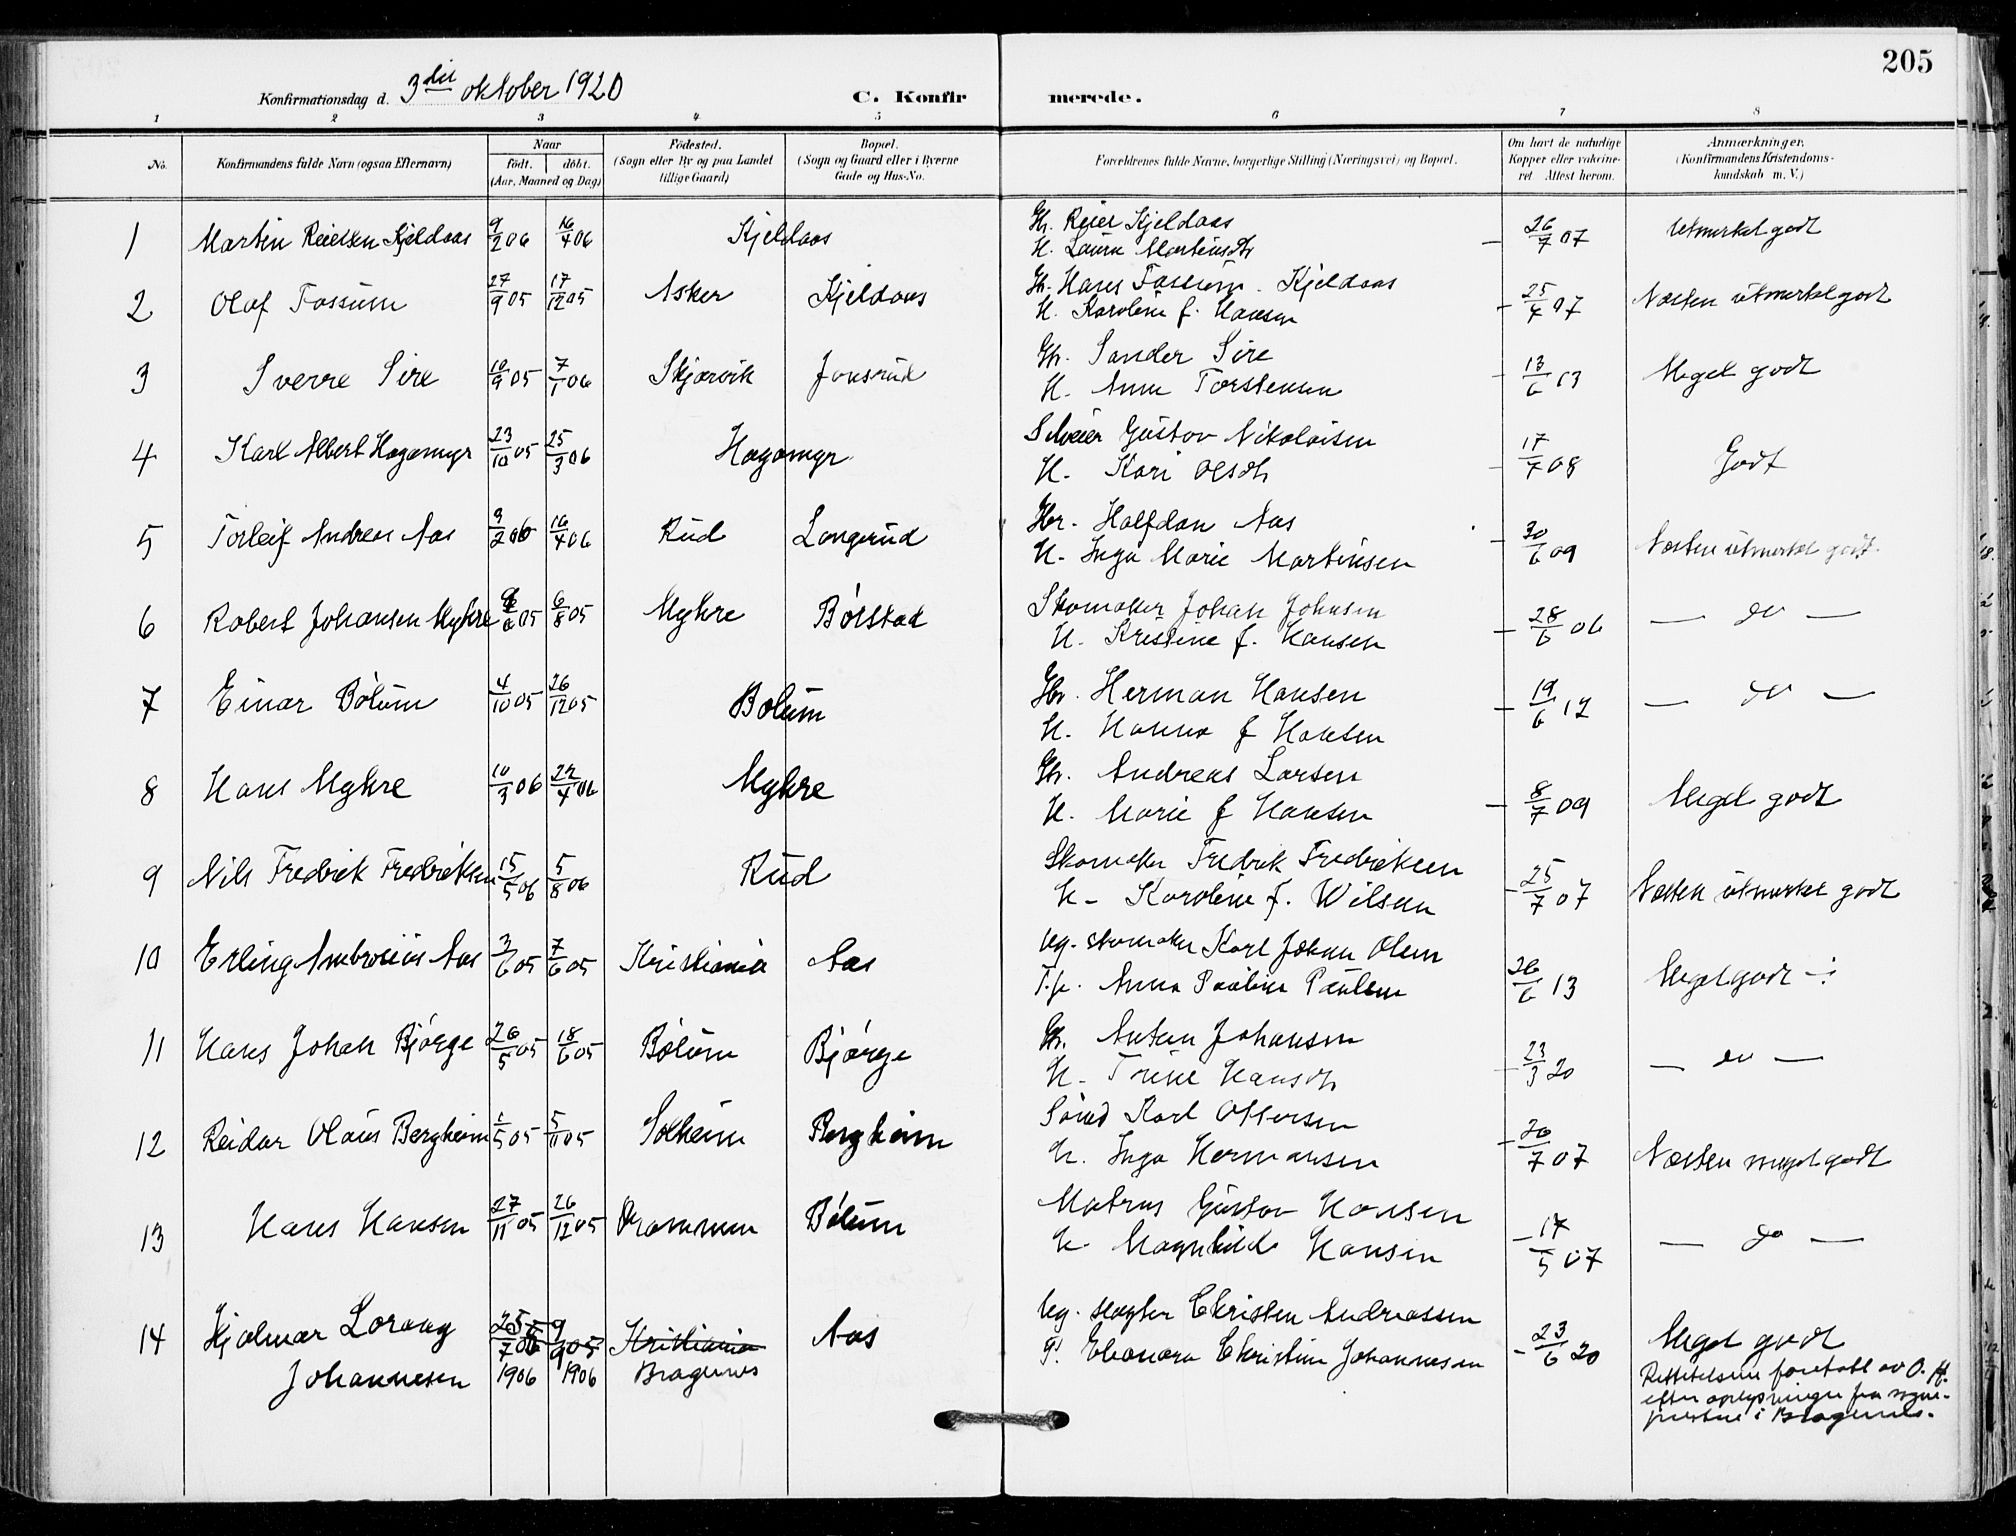 205
Konfirmationsdag d. 3die oktober 1920
C. Konfir merede.
1 2 3 4 5 6 7 8
No. Konfirmandens fulde Navn (ogsaa Efternavn) Naar født. døbt. (Aar, Maaned og Dag) Fødested. (Sogn eller By og paa Landet tillige Gaard) Bopæl. (Sogn og Gaard eller i Byerne Gade og Hus-No. Forældrenes fulde Navne, borgerlige Stilling (Næringsvei) og Bopæl. Om havt de naturlige Kopper eller vakcineret Attest herom. Anmærkninger. (Konfirmandens Kristendomskundskab m. V.)
1 Martin Reiersen Kjeldaas 9/2 06 16/4 06 Kjeldaas Gbr. Reier Kjeldaas – 26/7 07 Utmerket godt
H. Laura Martinsdtr
2 Olaf Fossum 27/9 05 17/12 05 Asker Kjeldaas Gbr. Hans Fossum. Kjeldaas – 25/4 07 Næsten utmerket godt
H. Karoline f. Hansen
3 Sverre Sire 10/9 05 7/1 06 Skjærvik Jonsrud Gbr. Sander Sire – 13/6 13 Meget godt
H. Anna Torstensen
4 Karl Albert Hagamyr 23/10 05 25/3 06 Hagamyr Gustav Nikolaisen – 17/7 08 Godt
H. Kari Olsdtr
5 Torleif Andreas Aas 9/2 06 16/4 06 Rud Langerud Gbr. Halfdan Aas – 30/6 09 Næsten utmerket godt.
H. Inga Marie Martinsen
6 Robert Johansen Myhre 6/8 05 Myhre Børstad Skomaker Johan Johnsen – 28/6 06 — do —
H. Kristine f. Hansen
7 Einar Bølum 4/10 05 26/12 05 Bølum Gbr. Herman Hansen – 19/6 12 — do —
H. Hanna f Hansen
8 Hans Myhre 10/3 06 22/4 06 Myhre Gbr. Andreas Larsen – 8/7 09 Meget godt
H. Marie f Hansen
9 Nils Fredrik Fredriksen 15/5 06 5/8 06 Rud Skomaker Fredrik Fredriksen – 25/7 07 Næsten utmerket godt
H – Karoline f. Wilsen
10 Erling Ambrosius Aas 3/6 05 7/6 05 Kristiania Aas Ug. skomaker Karl Johan Olsen 26/6 13 Meget godt
T.p. Anna Pauline Paulsen
11 Hans Johan Bjørge 26/5 05 18/6 05 Bølum Bjørge Gbr. Anton Johansen – 23/3 20 — do —
H. Trine Hansdtr
12 Reidar Olaus Bergheim 1/5 05 5/11 05 Solheim Bergheim Karl Ottersen – 26/7 07 Næsten meget godt
H. Inga Hermansen
13 Hans Hansen 27/11 05 26/12 05 Drammen Bølum Matros Gustav Hansen – 17/5 07 — do —
H. Magnhild Hansen
14 Hjalmar Lorang 25/7 05 9/9 05 Kristiania Aas Ug. slagter Christen Andreassen – 23/6 20 Meget godt
Johannesen 1906 1906 Bragernes P. Eleonora Christine Johannesen
Rettelsene foretatt av O. H.
efter oplysninger fra sogne-
presten i Bragernes.